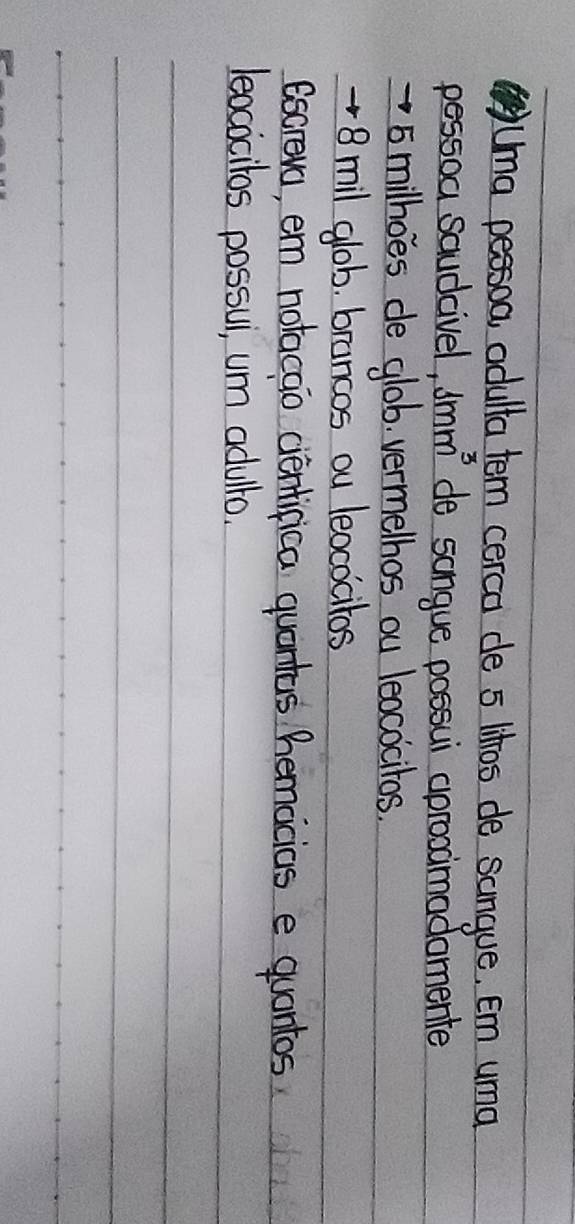 Uma pessoa adulta tem cerca de 5 litros de sangue. Em uma
pessoa saudável, 1mm³ de sangue possui aproximadamente
→ 5 milhões de glob. vermelhos ou leocócitos.
→ 8 mil glob. brancos ou leocócitos
Escreva, em notação ciêntifica quantas hemácias e quantos
leocócitos possui, um adulto.